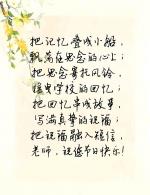 把记忆叠成小船，
飘荡在思念的心上；
把思念寄托风铃，
慢鬼学校的回忆；
把回忆串成故事，
写满真挚的祝福；
把祝福融入短信，
老师，祝您节日快乐！